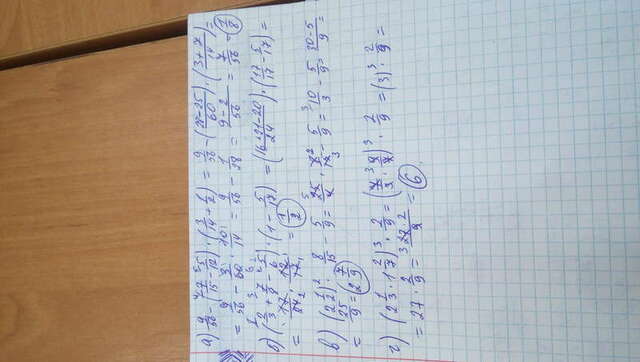 а) 9/56 - (7/15 - 5/12) · (3/14 + 1/2) = 9/56 - (28-25)/60 · (3+7)/14 =
= 9/56 - 3/60 · 10/14 = 9/56 - 1/28 = (9-2)/56 = 7/56 = 1/8
б) (2/3 + 7/8 - 5/6) · (1 - 5/17) = (16+21-20)/24 · (17/17 - 5/17) =
= 17/24 · 12/17 = 1/2
в) (2 1/2)² · 8/15 - 5/9 = 25/4 · 8/15 - 5/9 = 10/3 - 5/9 = (30-5)/9 =
= 25/9 = 2 7/9
г) (2 1/3 · 1 2/7)³ · 2/9 = (7/3 · 9/7)³ · 2/9 = (3)³ · 2/9 =
= 27 · 2/9 = 27·2/9 = 6